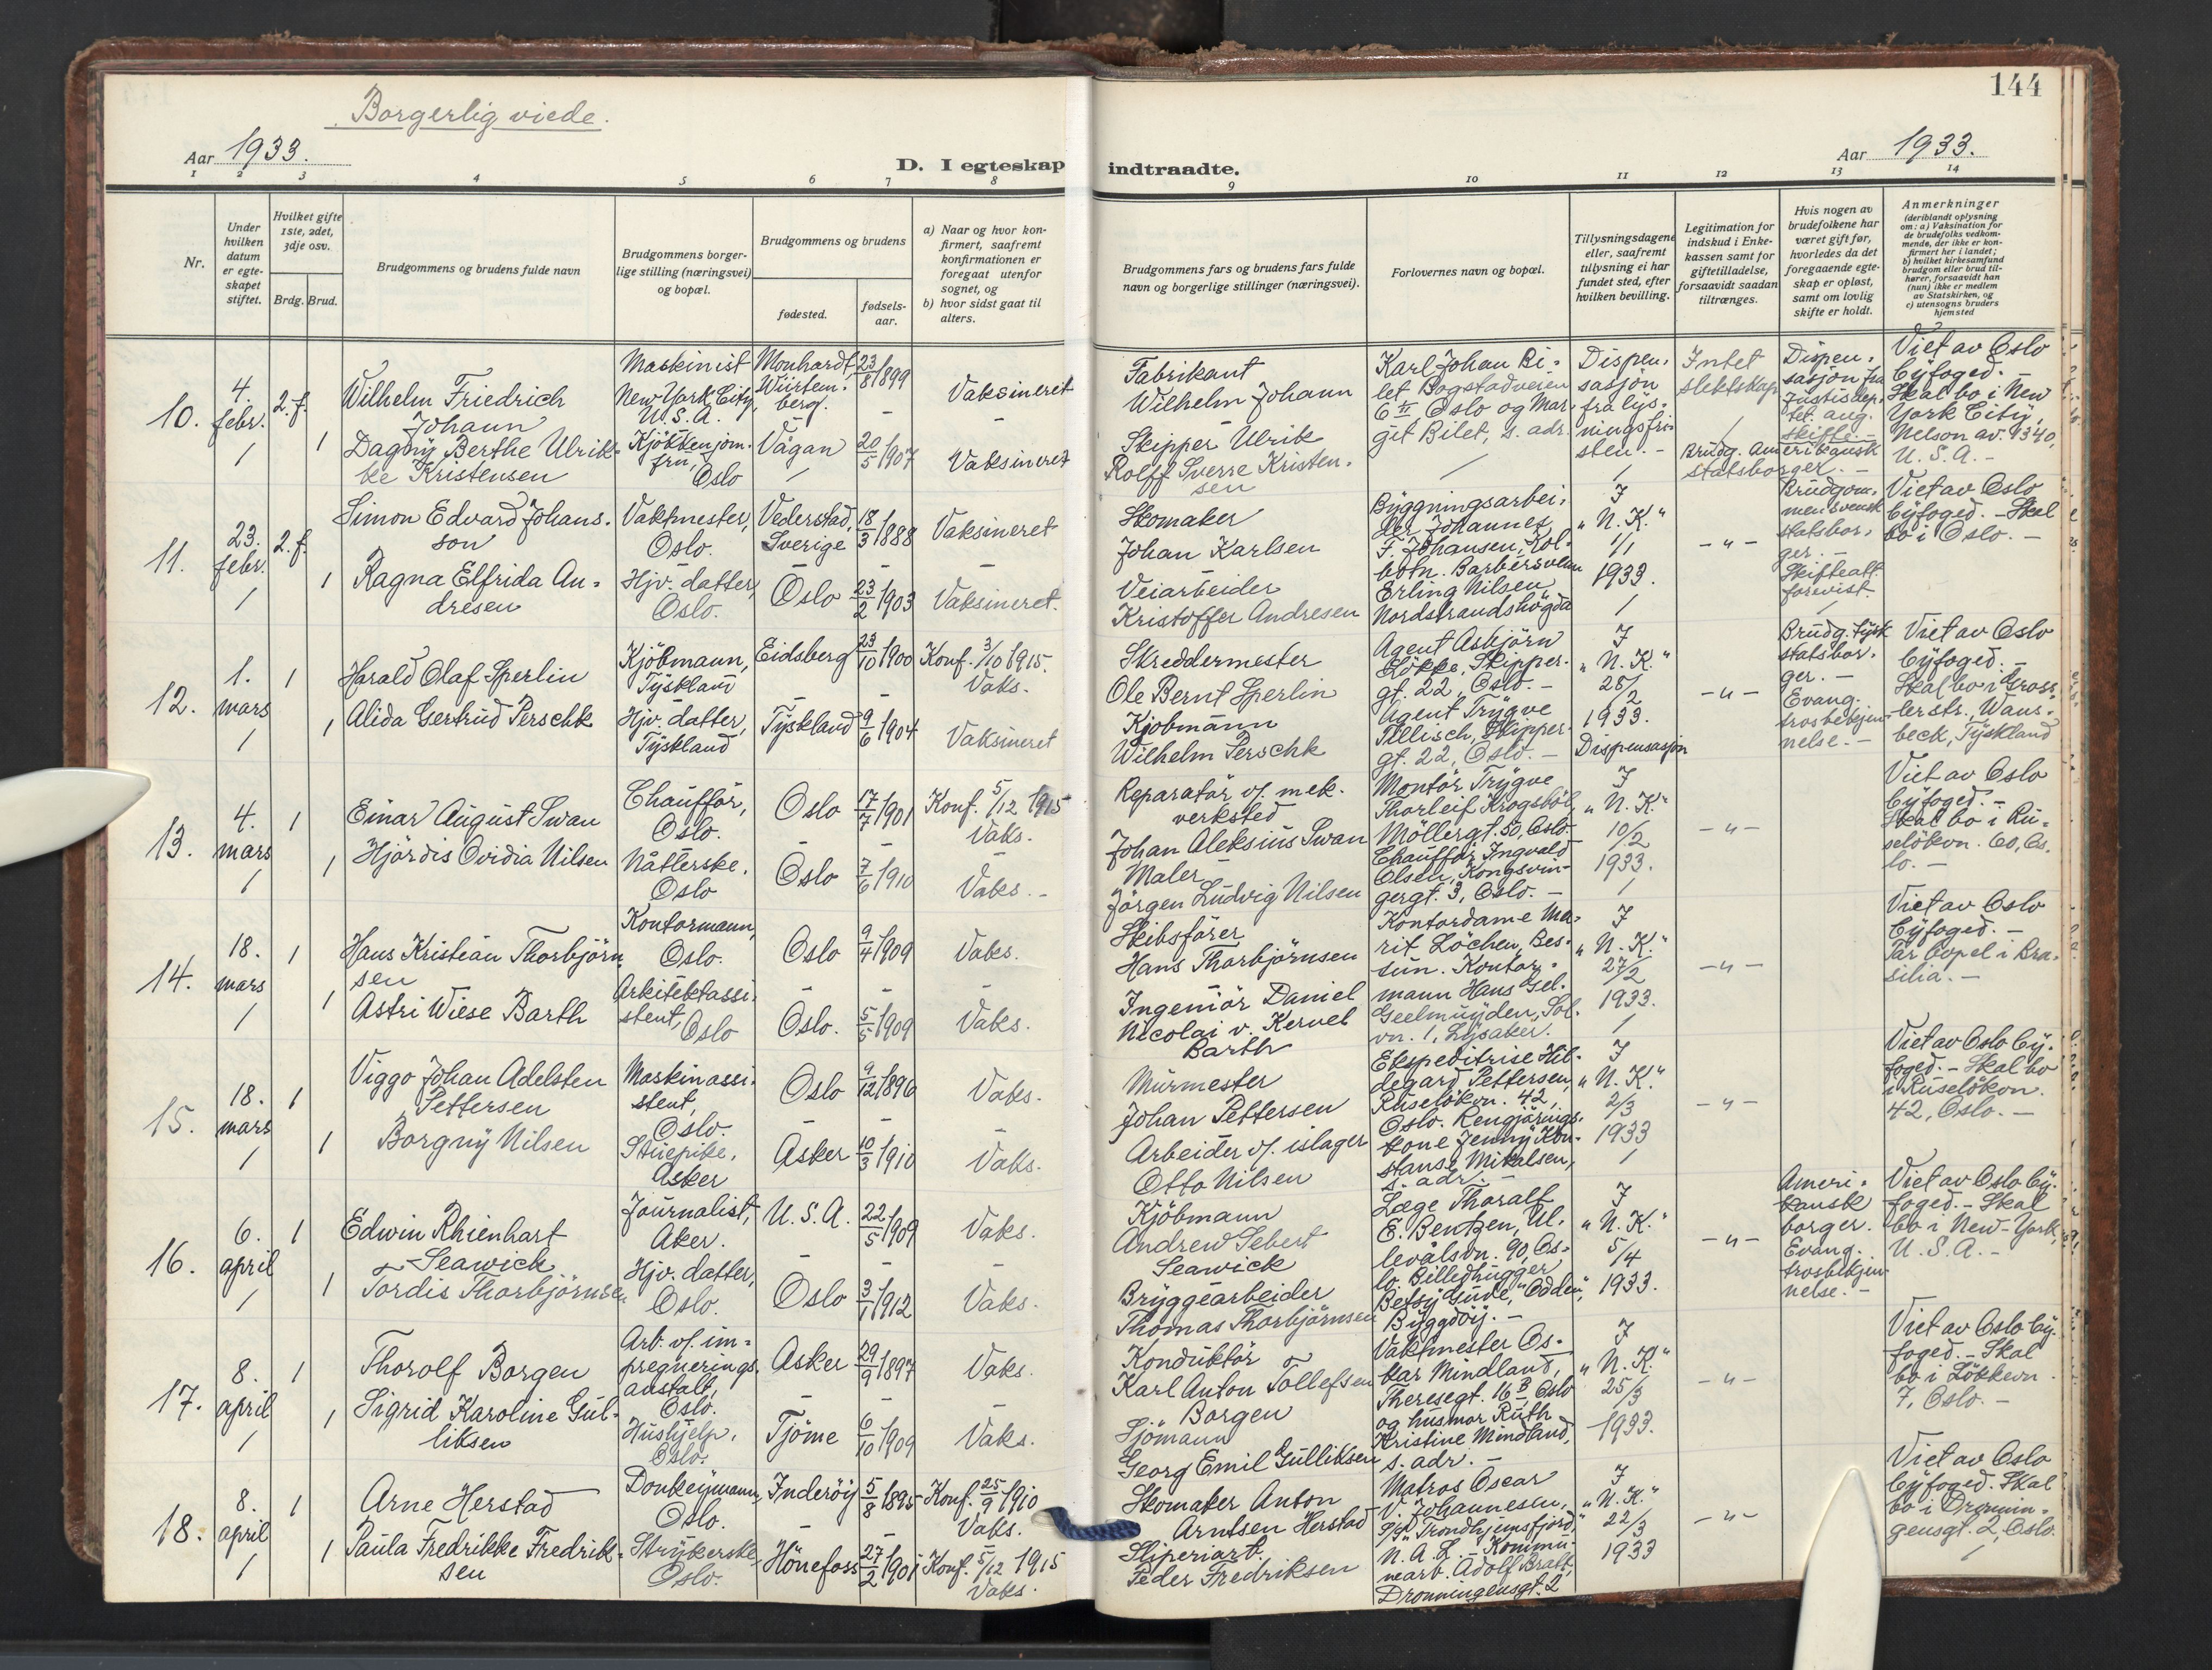 Borgerlig viede.
144
Aar 1933.
D. I egteskap indtraadte.
Aar 1933.
1 2 3 4 5 6 7 8 9 10 11 12 13 14
Nr.
Under hvilken datum er egteskapet stiftet.
Hvilket gifte 1ste, 2det, 3dje osv.
Brdg. Brud.
Brudgommens og brudens fulde navn
Brudgommens borgerlige stilling (næringsvei) og bopæl.
Brudgommens og brudens
fødested.
fødselsaar.
a) Naar og hvor konfirmert, saafremt konfirmationen er foregaat utenfor sognet, og
b) hvor sidst gaat til alters.
Brudgommens fars og brudens fars fulde navn og borgerlige stillinger (næringsvei).
Forlovernes navn og bopæl.
Tillysningsdagene eller, saafremt tillysning ei har fundet sted, efter hvilken bevilling.
Legitimation for indskud i Enkekassen samt for giftetilladelse, forsaavidt saadan tiltrænges.
Hvis nogen av brudefolkene har været gift før, hvorledes da det foregaaende egteskap er opløst, samt om lovlig skifte er holdt.
Anmerkninger (deriblandt oplysning om: a) Vaksination for de brudefolks vedkommende, der ikke er konfirmert her i landet; b) hvilket kirkesamfund brudgom eller brud tilhører, forsaavidt han (hun) ikke er medlem av Statskirken, og c) utensogns bruders hjemsted
10. 4. febr. 2. f.
Wilhelm Friedrich Johann
Maskinist New York City, U.S.A.
Monhardt, Würtemberg. 23/8 1899
Vaksineret
Fabrikant Wilhelm Johann
Karl Johan Bilet Bogstadveien 6 II Oslo og Margit Bilet, s. adr.
Dispensasjon fra lysningsfristen. -
Intet slektskap
Dispensasjon fra Justisdep. tet. ang. skifte. -
Brudg. Amerikansk statsborger. -
Viet av Oslo byfoged. - Skal bo i New York City, Nelson av. 4340, U.S.A. -
1 Dagny Berthe Ulrikke Kristensen
Kjökkenjomfru, Oslo
Vågan 20/5 1907
Vaksineret
Skipper Ulrik Rolff Sverre Kristensen
11. 23. febr. 2. f.
Simon Edvard Johansson
Vaktmester, Oslo.
Vederstad, Sverige 18/3 1888
Vaksineret
Skomaker Johan Karlsen
Byggningsarbeider Johannes F. Johansen, Kolbotn.
I "N.K." 1/1 1933.
- " -
Brudgommen svensk statsborger. - Skifteatt. forevist.
Viet av Oslo byfoged. - Skal bo i Oslo. -
1 Ragna Elfrida Andresen
Hjv. datter, Oslo.
Oslo 23/2 1903
Vaksineret.
Veiarbeider Kristoffer Andresen
Erling Nilsen Nordstrandshögda
12. 1. mars 1
Harald Olaf Sperlin
Kjöbmann, Tyskland
Eidsberg 23/10 1900
Konf. 3/10 1915. Vaks.
Skreddermester Ole Bernt Sperlin
Agent Asbjörn Lökke, Skippergt. 22, Oslo. -
I "N.K." 28/2 1933. Dispensasjon
- " -
Brudg. tysk statsborger. - Evang. trosbekjennelse. -
Viet av Oslo byfoged. - Skal bo i Grosslerstr., Wansbeck, Tyskland
1 Alida Gertrud Perschk
Hjv. datter, Tyskland
Tyskland 9/6 1904
Vaksineret
Kjöbmann Wilhelm Perschk
Agent Trygve Tellisch, Skippergt. 22, Oslo. -
13. 4. mars 1
Einar August Swan
Chaufför, Oslo.
Oslo 17/7 1901
Konf. 5/12 1915 Vaks.
Reparatör v/ mek. verksted Johan Aleksius Swan
Montör Trygve Thorleif Krogsböl, Möllergt. 50, Oslo. -
I "N.K." 10/2 1933.
- " -
Viet av Oslo byfoged. - Skal bo i Ruselökvn. 60, Oslo. -
1 Hjördis Ovidia Nilsen
Nåtterske. Oslo
Oslo 7/6 1910
Vaks. -
Maler Jörgen Ludvig Nilsen
Chaufför Ingvald Olsen, Kongsvingergt. 3, Oslo. -
14. 18. mars 1
Hans Kristian Thorbjörnsen
Kontormann, Oslo.
Oslo 9/4 1909
Vaks.
Skibsförer Hans Thorbjörnsen
Kontordame Marit Löchen, Bestun.
I "N.K." 27/2 1933.
- " -
Viet av Oslo byfoged. - Tar bopel i Brasilia. -
1 Astri Wiese Barth
Arkitektassistent, Oslo
Oslo. 5/5 1909
Vaks.
Ingeniör Daniel Nicolai v. Kervel Barth
Kontormann Hans Gel. Geelmuyden, Solvn. 1, Lysaker.
15. 18. mars 1
Viggo Johan Adelsten Pettersen
Maskinassistent, Oslo.
Oslo 9/12 1896
Vaks.
Murmester Johan Pettersen
Ekspeditrise Hildegard Pettersen, Ruselökvn. 42, Oslo.
I "N.K." 2/3 1933
- " -
Viet av Oslo byfoged. - Skal bo i Ruselökvn. 42, Oslo. -
1 Borgny Nilsen
Stuepike, Asker
Asker 10/3 1910
Vaks.
Arbeider v/ islager Otto Nilsen
Rengjöringskone Jenny Konstanse Mikalsen, s. adr. -
16. 6. april 1
Edwin Rhienhart Seawick
Journalist, Aker.
U.S.A. 22/5 1909
Vaks.
Kjöbmann Andrew Gebert Seawick
Læge Thoralf E. Bentzen, Ullevålsvn. 90, Oslo.
I "N.K." 5/4 1933.
- " -
Amerikansk borger. Evang. trosbekjennelse. -
Viet av Oslo byfoged. - Skal bo i New-York, U.S.A. -
1 Tordis Thorbjörnsen
Hjv. datter, Oslo.
Oslo 3/1 1912
Vaks.
Bryggearbeider Thomas Thorbjörnsen
Billedhugger Betsy Gude, "Odden", Byggdöy. -
17. 8. april 1
Thorolf Borgen
Arb. v/ impregneringsanstalt, Oslo.
Asker 29/9 1897
Vaks.
Konduktör Karl Anton Tollefsen Borgen
Vaktmester Oskar Mindland, Theresegt. 16 B Oslo
I "N.K." 25/3 1933.
- " -
Viet av Oslo byfoged. - Skal bo i Lökkevn 7, Oslo. -
1 Sigrid Karoline Gulliksen
Hushjelp, Oslo.
Tjöme 6/10 1909
Vaks.
Sjömann Georg Emil Gulliksen
og husmor Ruth Kristine Mindland, s. adr. -
18. 8. april 1
Arne Herstad
Donkeymann, Oslo.
Inderöy 5/8 1895
Konf. 25/9 1910 Vaks.
Skomaker Anton Arntsen Herstad
Matros Oscar V. Johannesen, "Trondhjemsfjord," N.A.L. -
I "N.K." 22/3 1933
- " -
Viet av Oslo byfoged. Skal bo i Dronningensgt. 2, Oslo.
1 Paula Fredrikke Fredriksen
Strykerske Oslo.
Hönefoss 27/2 1901
Konf. 5/12 1915 Vaks.
Sliperiarb. Peder Fredriksen
Kommunearb. Adolf Bratt, Dronningensgt. 2